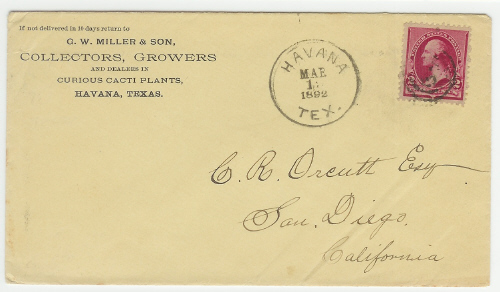 If not delivered in 10 days return to
G. W. MILLER & SON,
COLLECTORS, GROWERS
AND DEALERS IN
CURIOUS CACTI PLANTS,
HAVANA, TEXAS.
HAVANA
MAR
1892
TEX.
C. R. Orcutt Esq
San Diego.
California